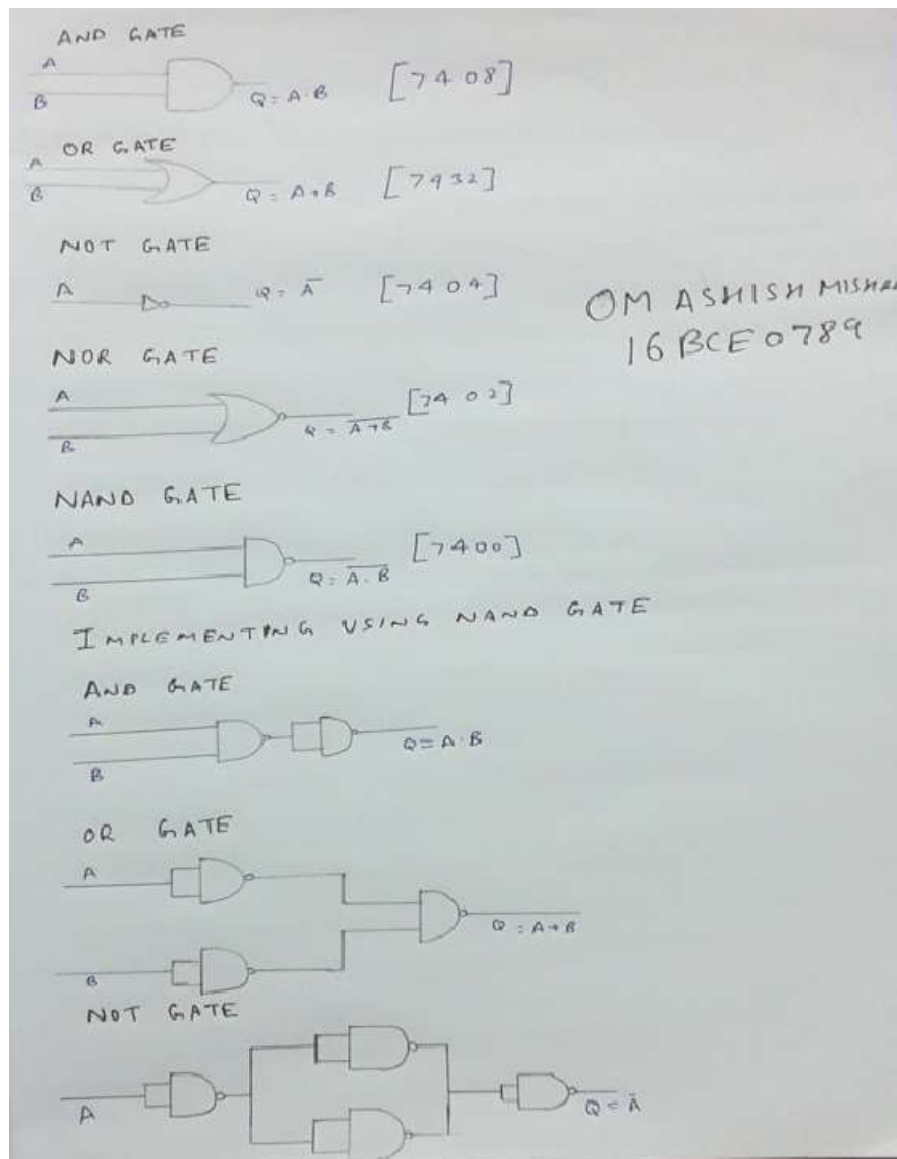 AND GATE
A
B
Q = A · B [7408]
OR GATE
A
B
Q = A+B [7432]
NOT GATE
A
Q = A̅ [7404]
OM ASHISH MISHRA
16BCE0789
NOR GATE
A
B
Q = A̅+̅B̅ [7402]
NAND GATE
A
B
Q = A̅ ·̅ B̅ [7400]
IMPLEMENTING USING NAND GATE
AND GATE
A
B
Q = A · B
OR GATE
A
B
Q = A+B
NOT GATE
A
Q = A̅